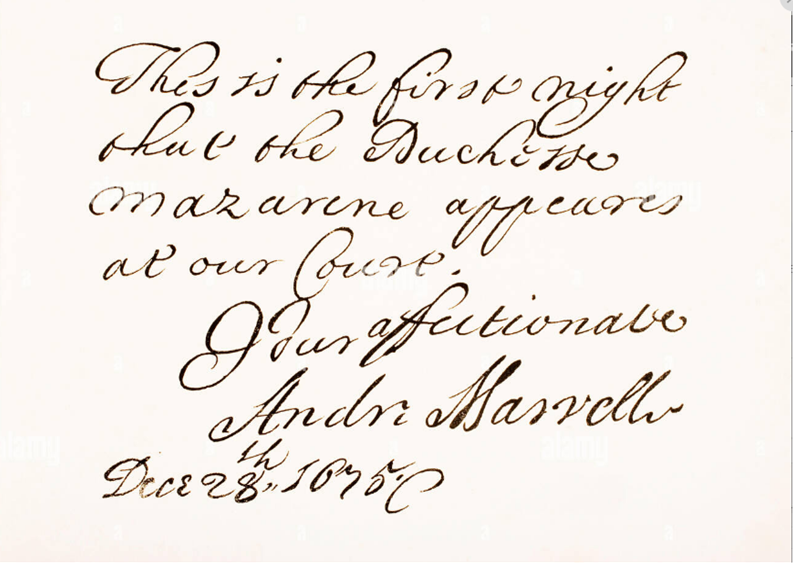 This is the first night
that the Duchesse
Mazarine appeares
at our Court.
Your affectionate
Andr: Marvell
Dece 28th 1675